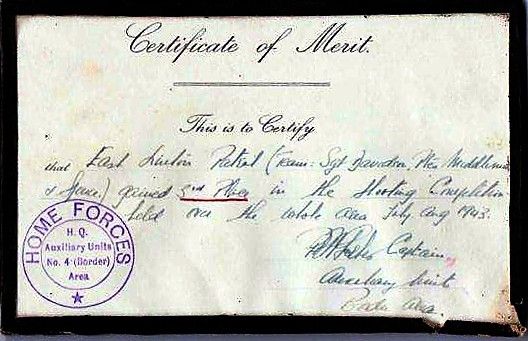 Certificate of Merit.
This is to Certify
that East Linton Patrol (Team: Sgt Davidson, Ptes Middlemiss
& ) gained 3rd Place in the Shooting Competition
held over the whole area July Aug 1943.
Captain
Auxiliary Units
Border Area.
HOME FORCES
H.Q.
Auxiliary Units
No. 4 (Border)
Area